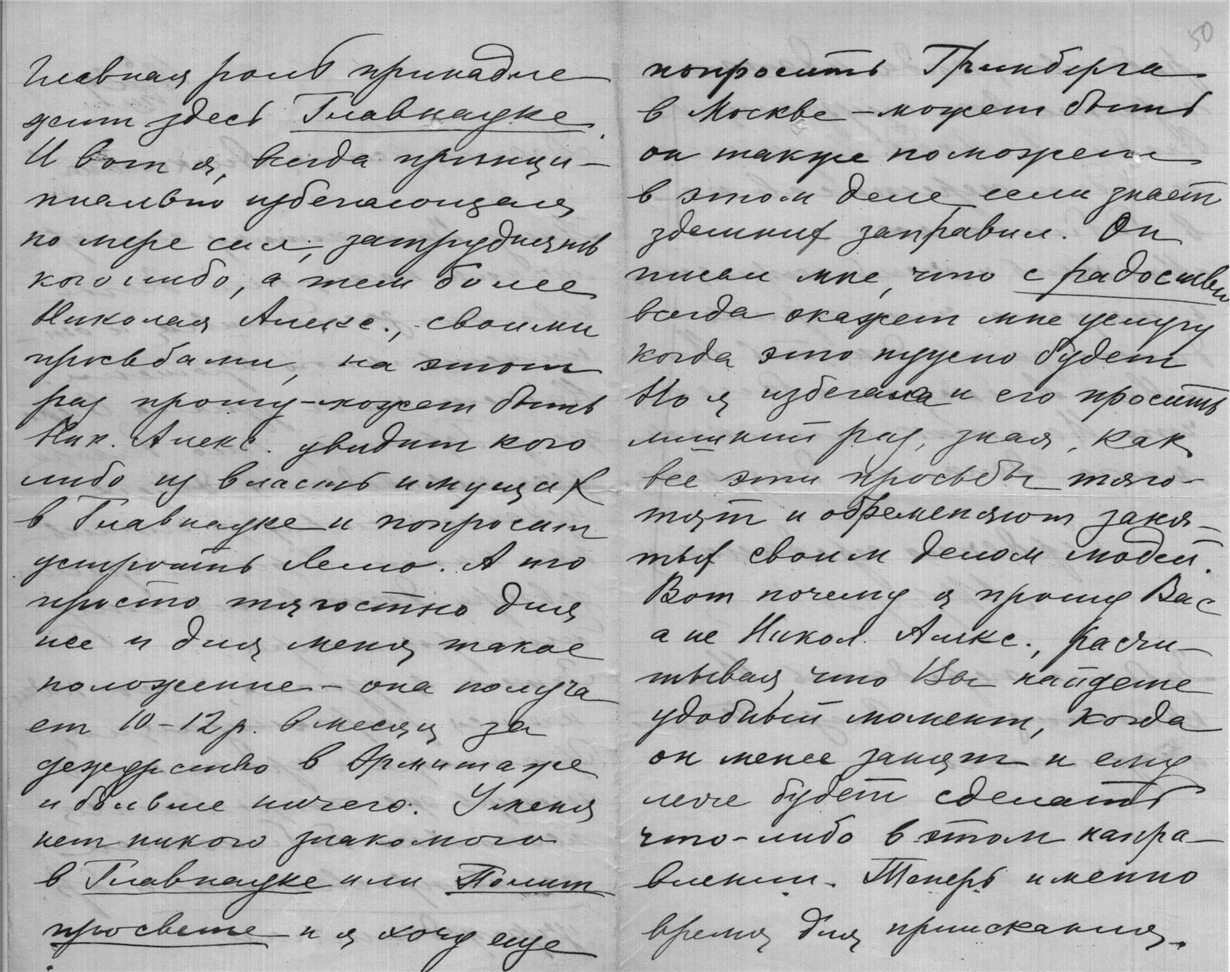 Главная роль принадле
жит здесь Главнауке.
И вот я, всегда принци-
пиально избегающая,
по мере сил, затруднять
кого либо, а тем более
Николая Алекс., своими
просьбами, на этот
раз прошу – может быть
Ник. Алекс. увидит кого
либо из власть имущих
в Главнауке и попросит
устроить Лелю. А то
просто тягостно для
нее и для меня такое
положение – она получа
ет 10–12 р. в месяц за
дежурство в Эрмитаже
и больше ничего. У меня
нет никого знакомого
в Главнауке или Полит
просвете и я хочу еще
50
попросить Гринберга
в Москве – может быть
он также поможет
в этом деле если знает
здешних заправил. Он
писал мне, что с радостью
всегда окажет мне услугу
когда это нужно будет
Но я избегала и его просить
лишний раз, зная, как
все эти просьбы тяго-
тят и обременяют заня-
тых своим делом людей.
Вот почему я прошу Вас
а не Никол. Алекс., расчи-
тывая, что Вы найдете
удобный момент, когда
он менее занят и ему
легче будет сделать
что-либо в этом напра-
влении. Теперь именно
время для приискания.